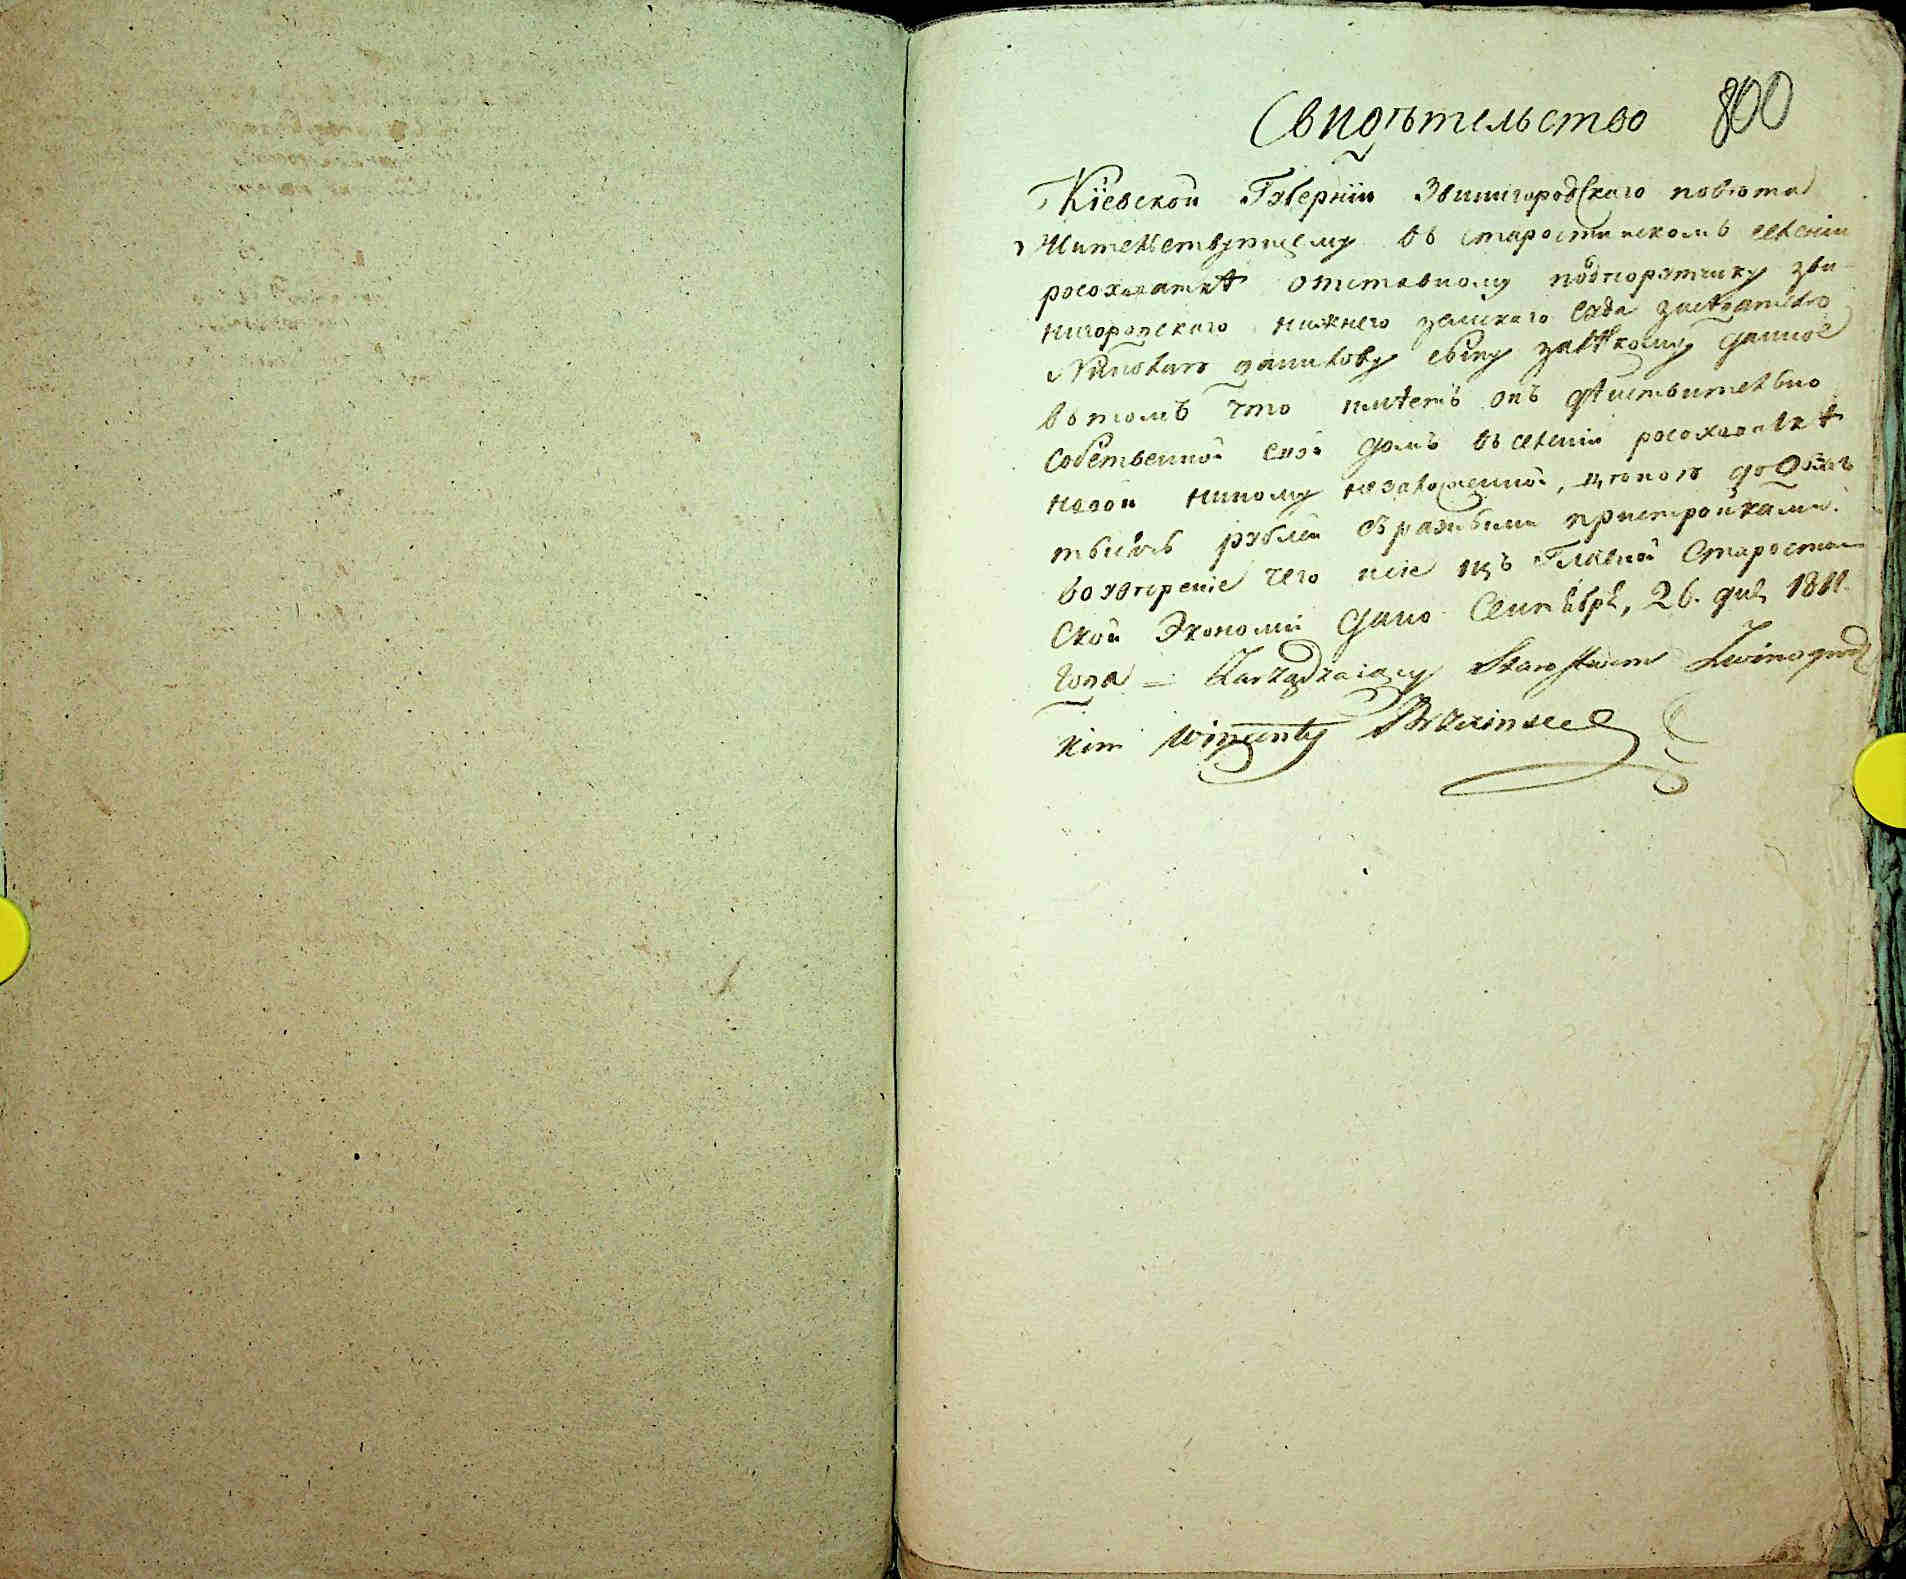 800
Свидѣтельство
Кіевской Губерніи Звинигородскаго повѣта
Жительствующему въ старостинскомъ селеніи
росоховаткѣ отставному подпорутчику зви-
нигородскаго нижнего земскаго суда засѣдателю
данилову сыну данное
вотомъ что имѣетъ онъ дѣиствительно
собственной свой домъ въ селеніи росоховаткѣ
никому незаложенной, цѣною до
тысячь рублей съ разными пристройками.
во увѣреніе чего и сіе изъ Главной Старостин-
ской Экономіи дано Сентября, 26. дня 1811.
года — Zarządzaiący Starostwem Zwinogrodz
kim Wincenty